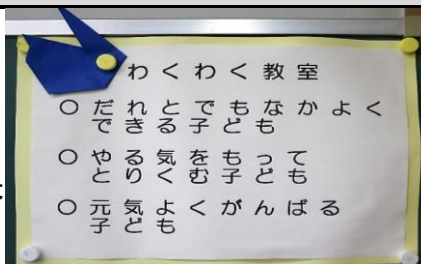 わくわく教室
○だれとでもなかよく
できる子ども
○やる気をもって
とりくむ子ども
○元気よくがんばる
子ども